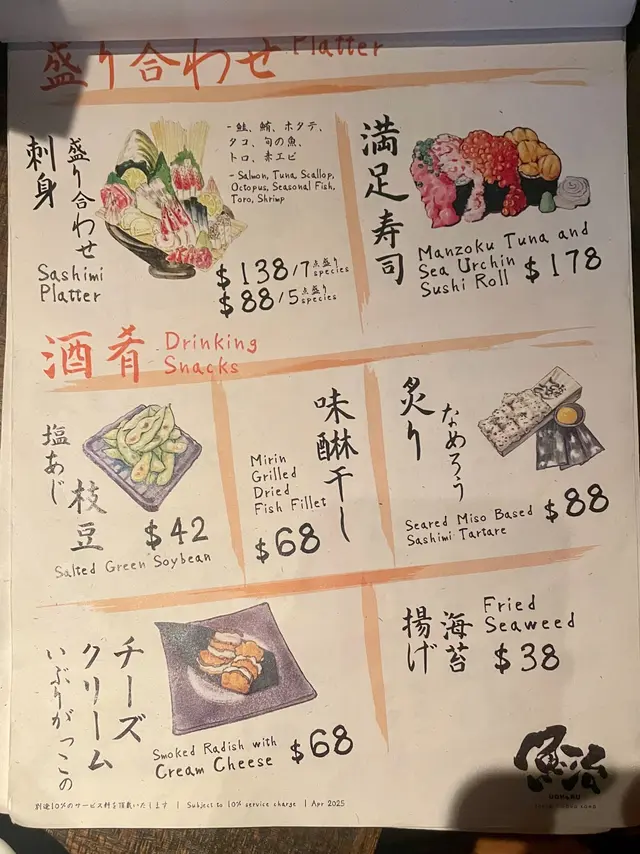 盛り合わせ Platter
刺身
盛り合わせ
Sashimi
Platter
- 鮭、鮪、ホタテ、
タコ、旬の魚、
トロ、赤エビ
- Salmon, Tuna, Scallop,
Octopus, Seasonal Fish,
Toro, Shrimp
$138/7点盛り species
$88/5点盛り species
満足寿司
Manzoku Tuna and
Sea Urchin
Sushi Roll $178
酒肴 Drinking
Snacks
塩あじ
枝豆
$42
Salted Green Soybean
味醂干し
Mirin
Grilled
Dried
Fish Fillet
$68
炙り
なめろう
Seared Miso Based
Sashimi Tartare
$88
チーズ
クリーム
いぶりがっこの
Smoked Radish with
Cream Cheese
$68
海苔
揚げ
Fried
Seaweed
$38
魚治
UOHARU
別途10%のサービス料を頂戴いたします | Subject to 10% service charge | Apr 2025